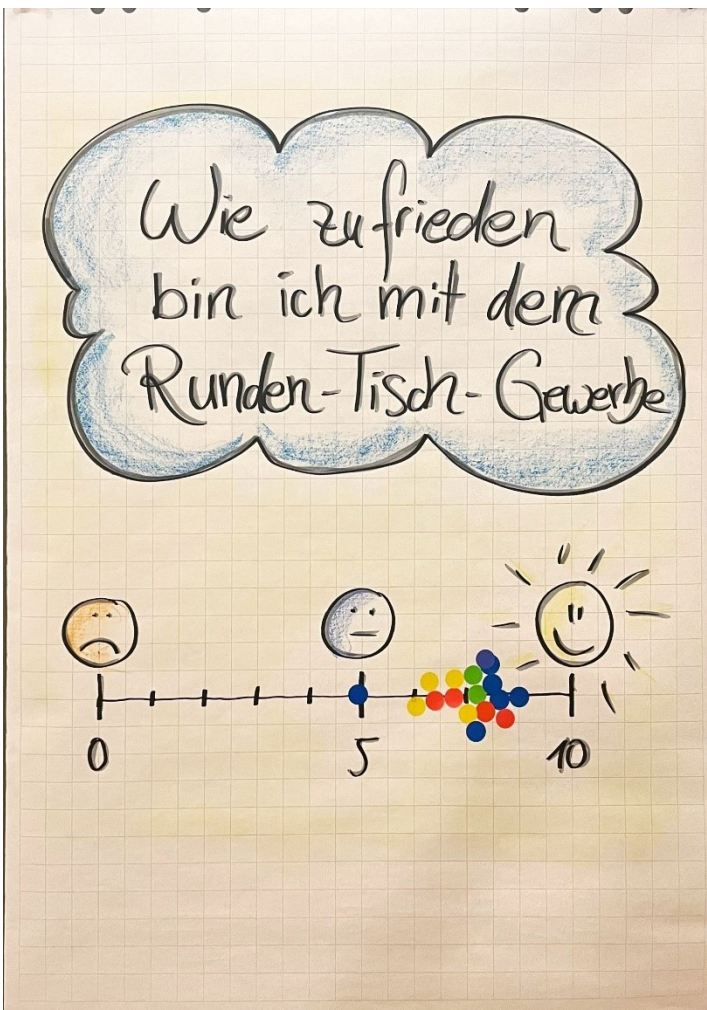 Wie zufrieden
bin ich mit dem
Runden-Tisch-Gewerbe
0 5 10